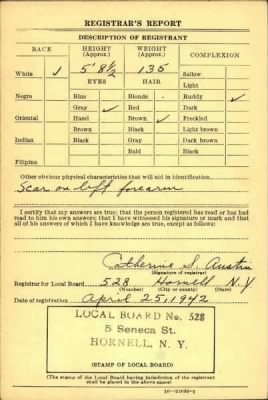 REGISTRAR'S REPORT
DESCRIPTION OF REGISTRANT
RACE HEIGHT (Approx.) WEIGHT (Approx.) COMPLEXION
White ✓ 5' 8½ 135 Sallow
EYES HAIR Light
Negro Blue Blonde Ruddy ✓
Gray ✓ Red Dark
Oriental Hazel Brown ✓ Freckled
Brown Black Light brown
Indian Black Gray Dark brown
Bald Black
Filipino
Other obvious physical characteristics that will aid in identification
Scar on left forearm
I certify that my answers are true; that the person registered has read or has had
read to him his own answers; that I have witnessed his signature or mark and that
all of his answers of which I have knowledge are true, except as follows:
Catherine S. Austin
(Signature of registrar)
Registrar for Local Board 528 Hornell N.Y.
(Number) (City or county) (State)
Date of registration April 25, 1942
LOCAL BOARD No. 528
5 Seneca St.
HORNELL, N. Y.
(STAMP OF LOCAL BOARD)
(The stamp of the Local Board having jurisdiction of the registrant
shall be placed in the above space)